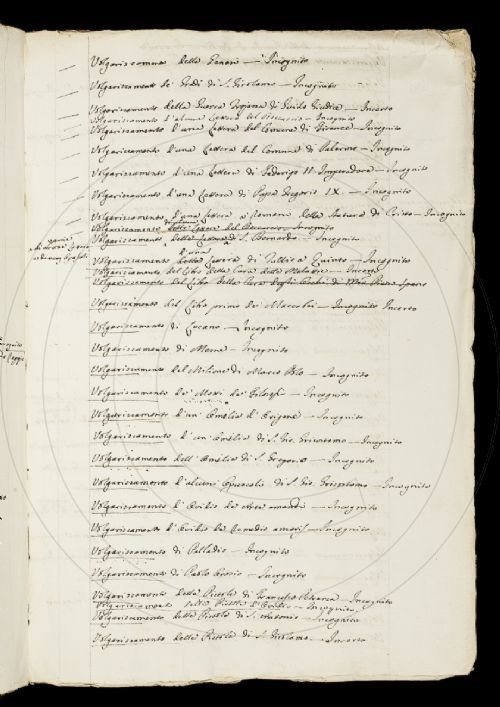 Volgarizzamento della Genesi — Incognito
Volgarizzamento de' Gradi di S. Girolamo — Incognito
Volgarizzamento della Guerra Trojana di Guido Giudice — Incerto
Volgarizzamento d'alcune Lettere del Boccaccio — Incognito
Volgarizzamento d'una Lettera del Comune di Firenze — Incognito
Volgarizzamento d'una Lettera del Comune di Palermo — Incognito
Volgarizzamento d'una Lettera di Federigo II. Imperadore — Incognito
Volgarizzamento d'una Lettera di Papa Gregorio IX. — Incognito
Volgarizzamento d'una Lettera a' Romani della Statura di Cristo — Incognito
Volgarizzamento delle Lettere del Boccaccio, Incognito
Volgarizzamento della Lettera di S. Bernardo — Incognito
d'una
Volgarizzamento della Lettera di Tullio a Quinto — Incognito
Volgarizzamento del Libro della Cura delle Malattie — Incerto
Volgarizzamento del Libro della Cura degli Occhi di Piero Spano
Volgarizzamento del Libro primo de' Maccabei — Incognito Incerto
Volgarizzamento di Lucano — Incognito
Volgarizzamento di Mesue — Incognito
Volgarizzamento del Milione di Marco Polo — Incognito
Volgarizzamento de' Morali de' Filosofi — Incognito
Volgarizzamento d'un' Omelia d'Origene — Incognito
Volgarizzamento d'un' Omelia di S. Gio. Grisostomo — Incognito
Volgarizzamento dell' Omelia di S. Gregorio — Incognito
Volgarizzamento d'alcuni Opuscoli di S. Gio. Grisostomo — Incognito
Volgarizzamento d'Ovidio de Arte amandi — Incognito
Volgarizzamento d'Ovidio de Remedio amoris — Incognito
Volgarizzamento di Palladio — Incognito
Volgarizzamento di Paolo Orosio — Incognito
Volgarizzamento della Pistola di Francesco Petrarca Incognito
Volgarizzamento delle Pistole d'Ovidio — Incognito
Volgarizzamento della Pistola di S. Antonio — Incognito
Volgarizzamento delle Pistole di S. Girolamo — Incerto